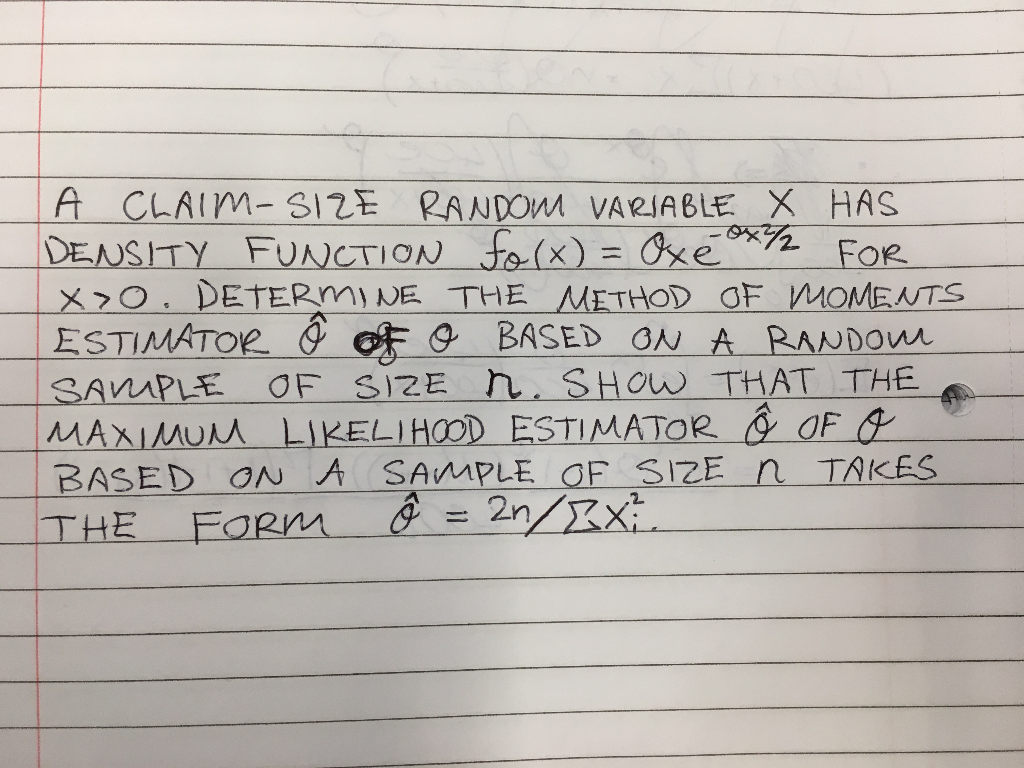 A CLAIM-SIZE RANDOM VARIABLE X HAS
DENSITY FUNCTION fθ(x) = θxe^{-θx²/2} FOR
X>0. DETERMINE THE METHOD OF MOMENTS
ESTIMATOR θ̂ of θ BASED ON A RANDOM
SAMPLE OF SIZE n. SHOW THAT THE
MAXIMUM LIKELIHOOD ESTIMATOR θ̂ OF θ
BASED ON A SAMPLE OF SIZE n TAKES
THE FORM θ̂ = 2n/ΣXᵢ².